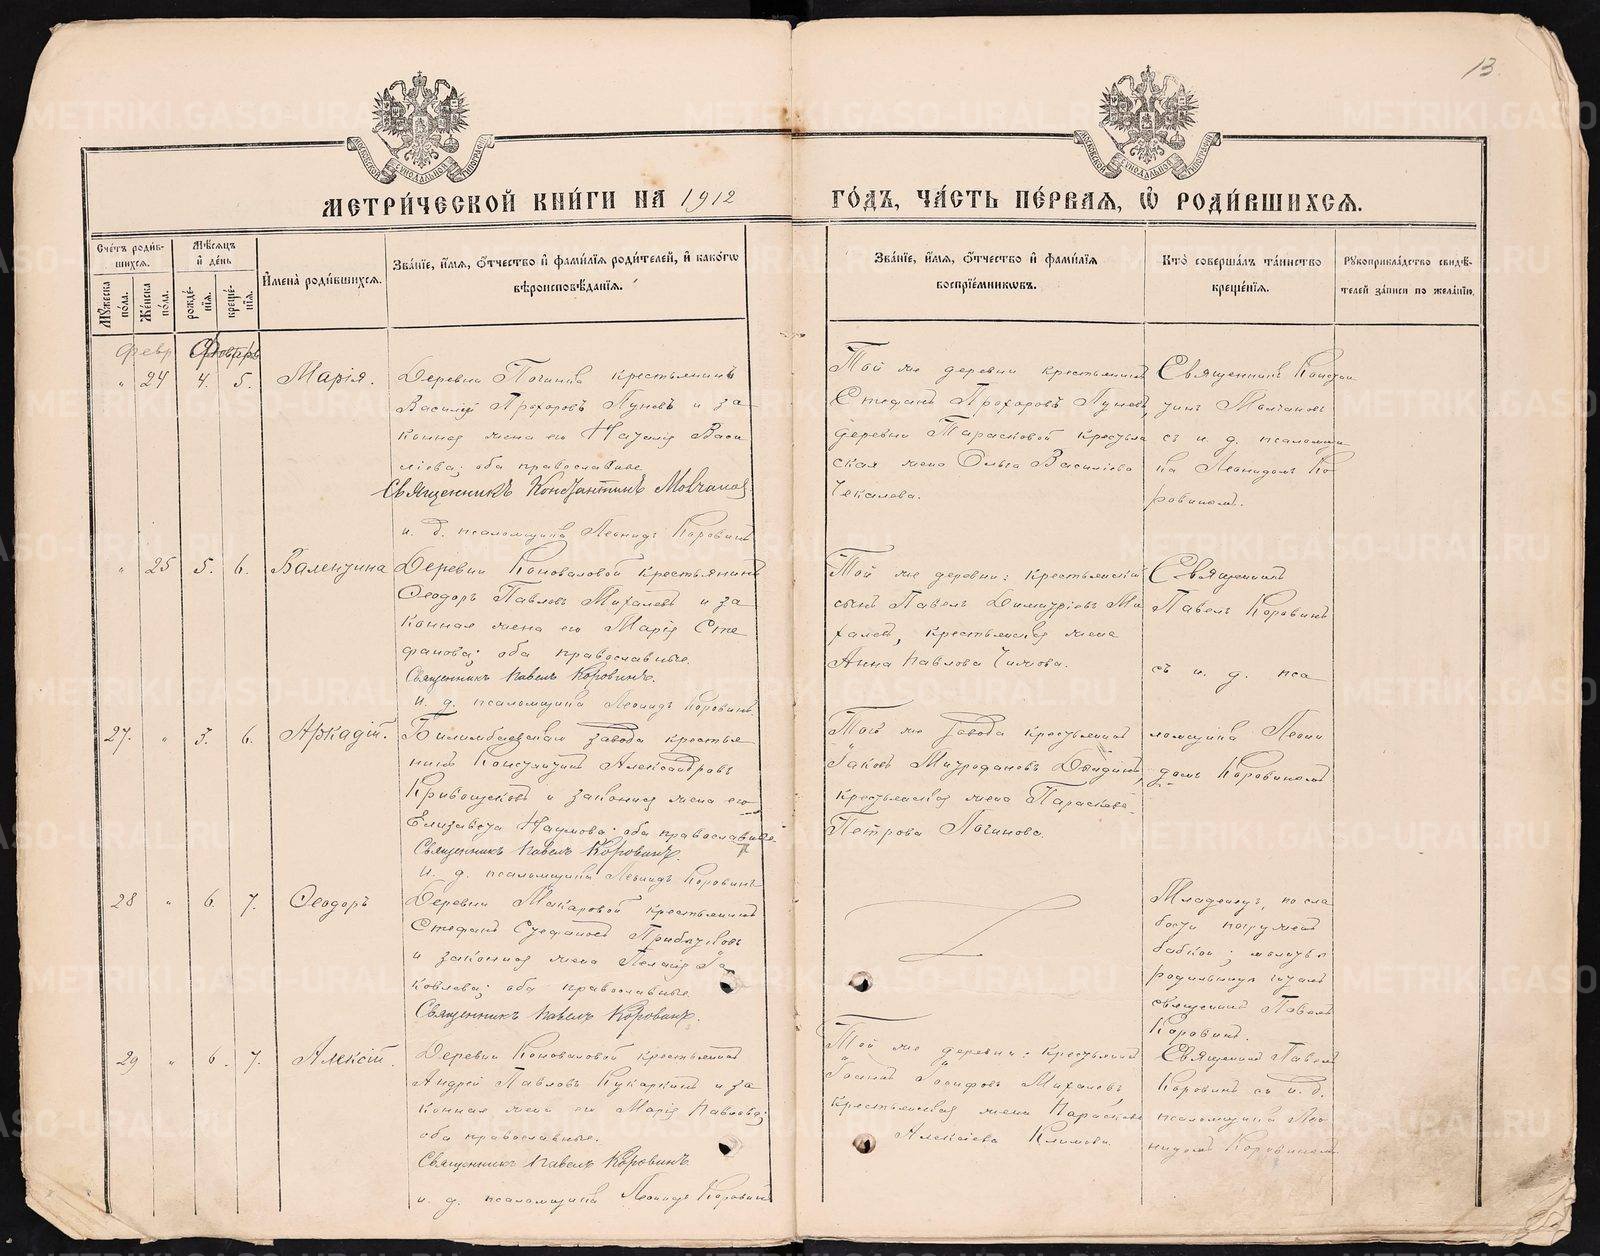 13.
МЕТРИ́ЧЕСКОЙ КНИ́ГИ НА 1912 ГО́ДЪ, ЧА́СТЬ ПЕ́РВАЯ, Ѡ҆ РОДИ́ВШИХСЯ.
Сче́тъ роди́вшихся.
Мѣ́сяцъ и҆ де́нь
Мꙋ́жеска по́ла.
Же́нска по́ла.
рожде́нїѧ.
креще́нїѧ.
И҆мена̀ роди́вшихсѧ.
Зва́нїе, и҆́мѧ, ѻ҆́тчество и҆ фами́лїѧ роди́телей, и҆ како́гѡ
вѣроисповѣ́данїѧ.
Зва́нїе, и҆́мѧ, ѻ҆́тчество и҆ фами́лїѧ
воспрїе́мникѡвъ.
Кто̀ соверша́лъ та́инство
креще́нїѧ.
Рꙋкоприкла́дство свидѣ́-
телей за́писи по жела́нїю.
Февр Февръ
" 24 4. 5. Марія.
Деревни Починка крестьянинъ
Василій Прохоровъ Пуневъ и за
конная жена его Наталія Васи
ліева; оба православные
Священникъ Константинъ Молчановъ
и. д. псаломщика Леонидъ Коровинъ
Той же деревни крестьянинъ
Стефанъ Прохоровъ Пуневъ
деревни Тарасковой крестьян
ская жена Ольга Василіева
Чекалова.
Священникъ Констан
тинъ Молчановъ
съ и. д. псаломщи
ка Леонидомъ Ко
ровинымъ.
" 25 5. 6. Валентина
Деревни Коноваловой крестьянинъ
Ѳеодоръ Павловъ Михалевъ и за
конная жена его Марія Сте
фанова; оба православные.
Священникъ Павелъ Коровинъ.
и. д. псаломщика Леонидъ Коровинъ
Той же деревни: крестьянскій
сынъ Павелъ Димитріевъ Ми
халевъ, крестьянская жена
Анна Павлова
Священникъ
Павелъ Коровинъ
съ и. д. пса
ломщика Леони
домъ Коровинымъ
27. " 5. 6. Аркадій.
Билимбаевскаго завода крестья
нинъ Константинъ Александровъ
Кривощековъ и законная жена его
Елизавета Наумова; оба православные.
Священникъ Павелъ Коровинъ.
и. д. псаломщика Леонидъ Коровинъ
Того же завода крестьянинъ
Іаковъ Митрофановъ
крестьянская жена Параскева
Петрова Логинова.
28 " 6. 7. Ѳеодоръ
Деревни Макаровой крестьянинъ
Стефанъ Стефановъ Прибытковъ
и законная жена Пелагія Іа
ковлева; оба православные.
Священникъ Павелъ Коровинъ.
Младенецъ, по сла
бости погруженъ
бабкой; молитвы
родильницѣ читалъ
священникъ Павелъ
Коровинъ.
29 " 6. 7. Алексій.
Деревни Коноваловой крестьянинъ
Андрей Павловъ Кукаркинъ и за
конная жена его Марія Павлова;
оба православные.
Священникъ Павелъ Коровинъ.
и. д. псаломщика Леонидъ Коровинъ
Той же деревни: крестьянинъ
Іосифовъ Михалевъ,
крестьянская жена Параскева
Алексіева Климова.
Священникъ Павелъ
Коровинъ съ и. д.
псаломщика Лео
нидомъ Коровинымъ
METRIKI.GASO-URAL.RU